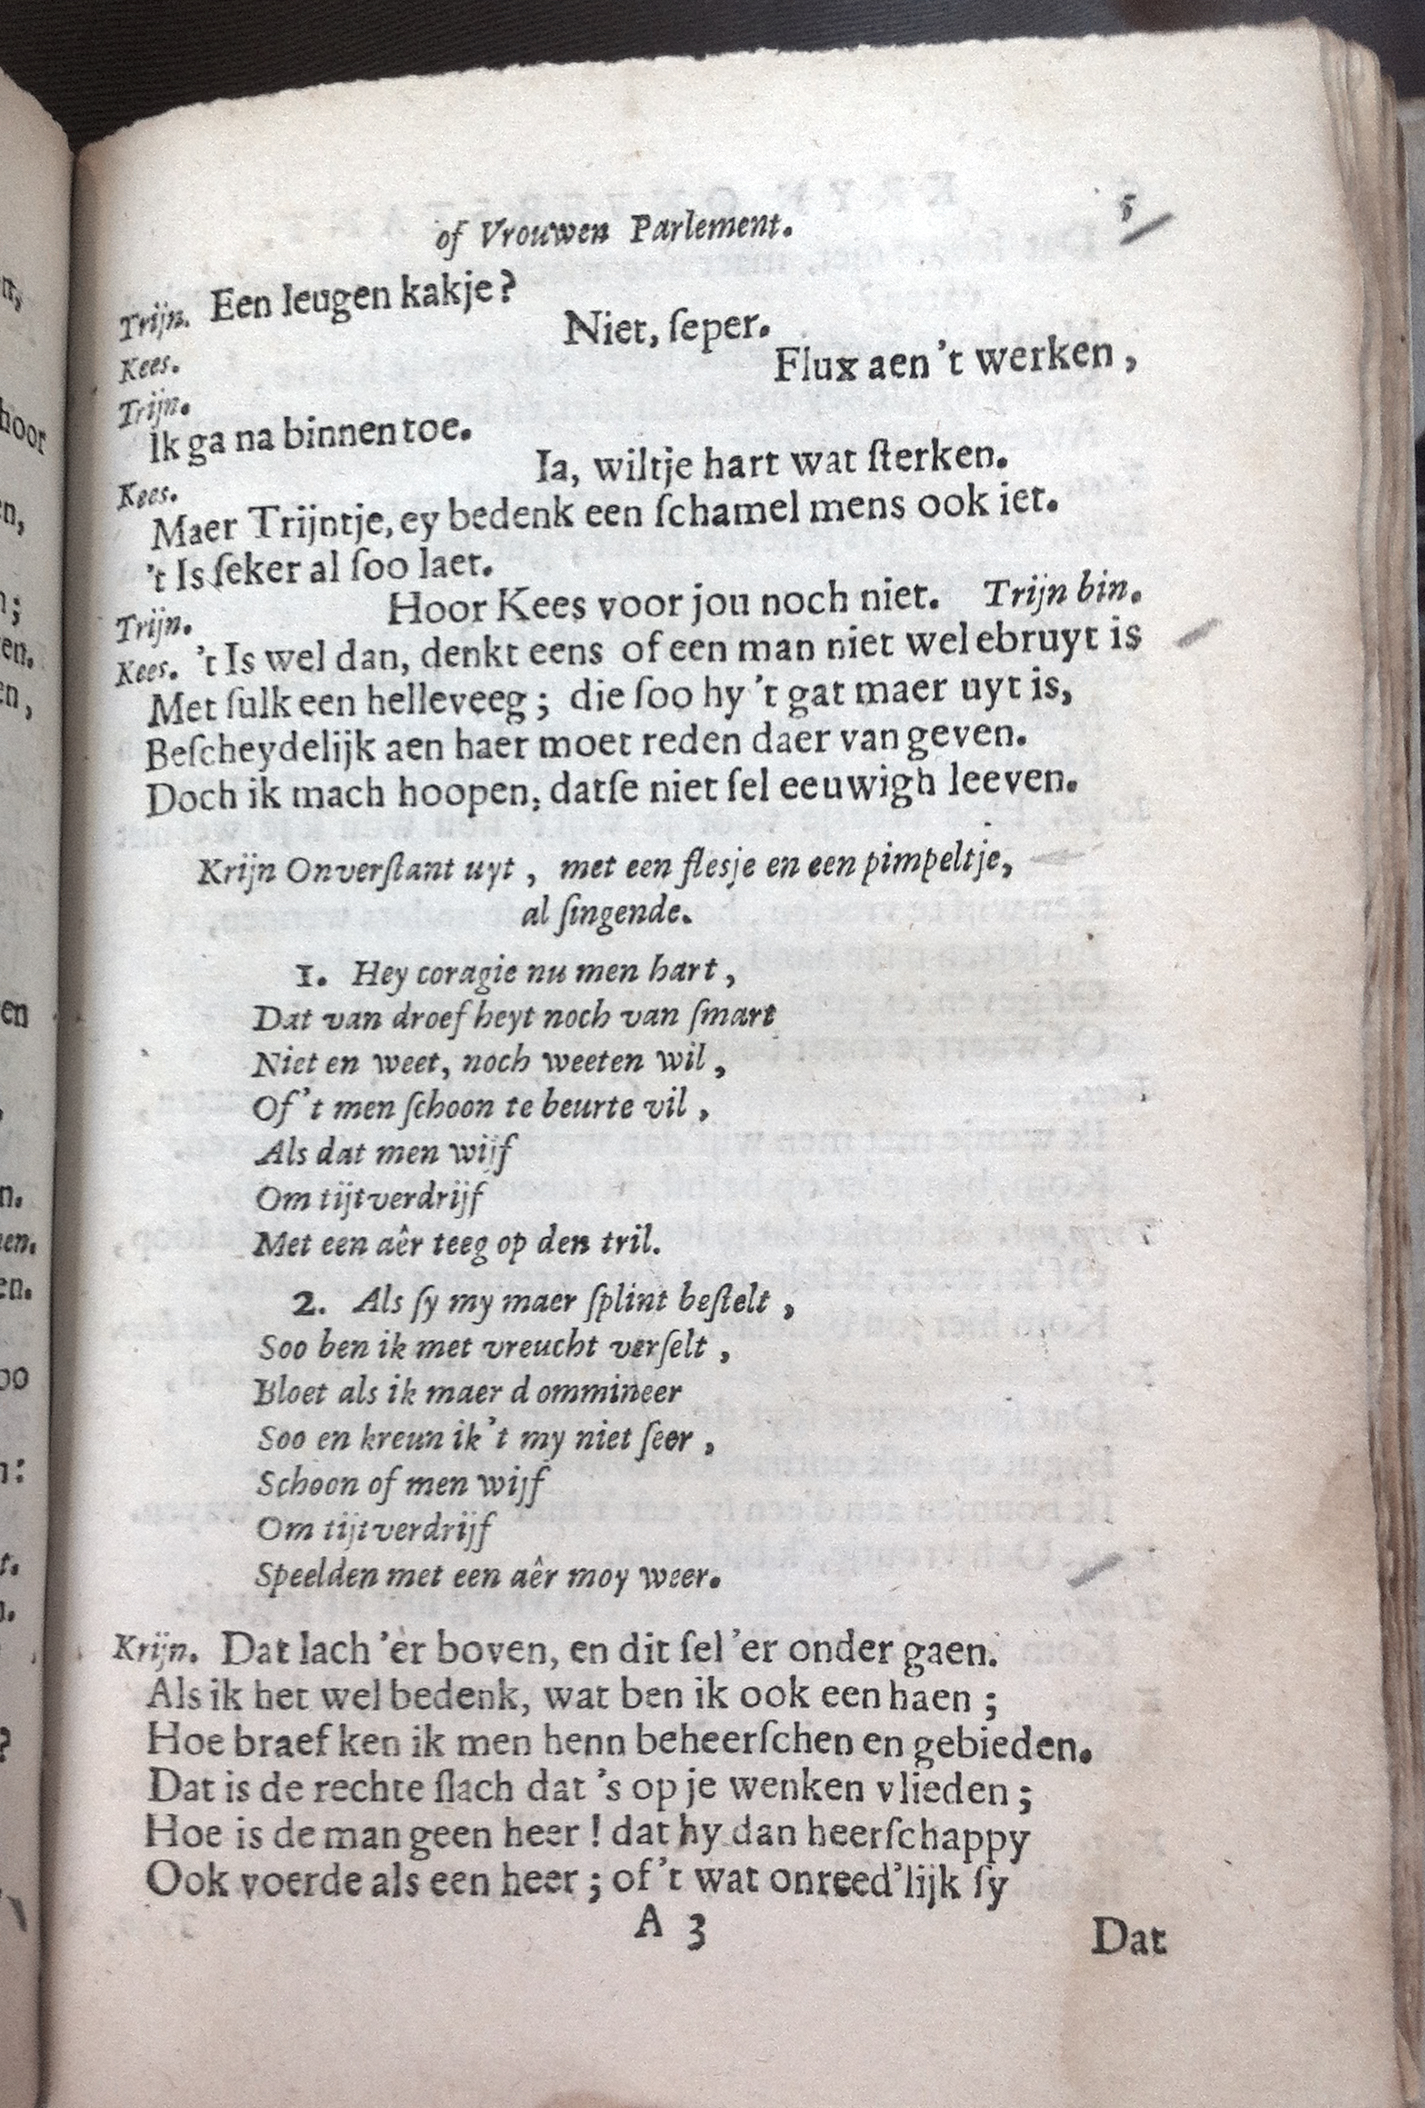 of Vrouwen Parlement. 5
Trijn. Een leugen kakje?
Kees. Niet, ſeper.
Trijn. Flux aen 't werken,
Ik ga na binnen toe.
Kees. Ia, wiltje hart wat ſterken.
Maer Trijntje, ey bedenk een ſchamel mens ook iet.
't Is ſeker al ſoo laet.
Trijn. Hoor Kees voor jou noch niet. Trijn bin.
Kees. 't Is wel dan, denkt eens of een man niet wel ebruyt is
Met ſulk een helleveeg; die ſoo hy 't gat maer uyt is,
Beſcheydelijk aen haer moet reden daer van geven.
Doch ik mach hoopen, datſe niet ſel eeuwigh leeven.
Krijn Onverſtant uyt, met een flesje en een pimpeltje,
al ſingende.
1. Hey coragie nu men hart,
Dat van droef heyt noch van ſmart
Niet en weet, noch weeten wil,
Of 't men ſchoon te beurte vil,
Als dat men wijf
Om tijtverdrijf
Met een aêr teeg op den tril.
2. Als ſy my maer ſplint beſtelt,
Soo ben ik met vreucht verſelt,
Bloet als ik maer d ommineer
Soo en kreun ik 't my niet ſeer,
Schoon of men wijf
Om tijtverdrijf
Speelden met een aêr moy weer.
Krijn. Dat lach 'er boven, en dit ſel 'er onder gaen.
Als ik het wel bedenk, wat ben ik ook een haen;
Hoe braef ken ik men henn beheerſchen en gebieden.
Dat is de rechte ſlach dat 's op je wenken vlieden;
Hoe is de man geen heer! dat hy dan heerſchappy
Ook voerde als een heer; of 't wat onreed'lijk ſy
A 3
Dat